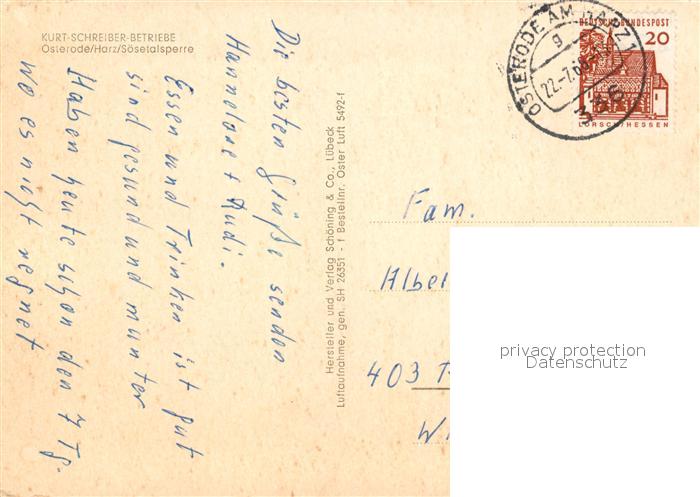 KURT-SCHREIBER-BETRIEBE
Osterode/Harz/Sösetalsperre
Die besten Grüße senden
Hannelore + Rudi.
Essen und Trinken ist gut
sind gesund und munter
Haben heute schon den 7 Tg.
wo es nicht regnet
Hersteller und Verlag Schöning & Co., Lübeck
Luftaufnahme, gen. SH 26351 - f Bestellnr. Oster Luft 5492-f
OSTERODE AM HARZ 1
g
22.-7.66
DEUTSCHE BUNDESPOST
20
LORSCH/HESSEN
Fam.
Alber
403
privacy protection
Datenschutz